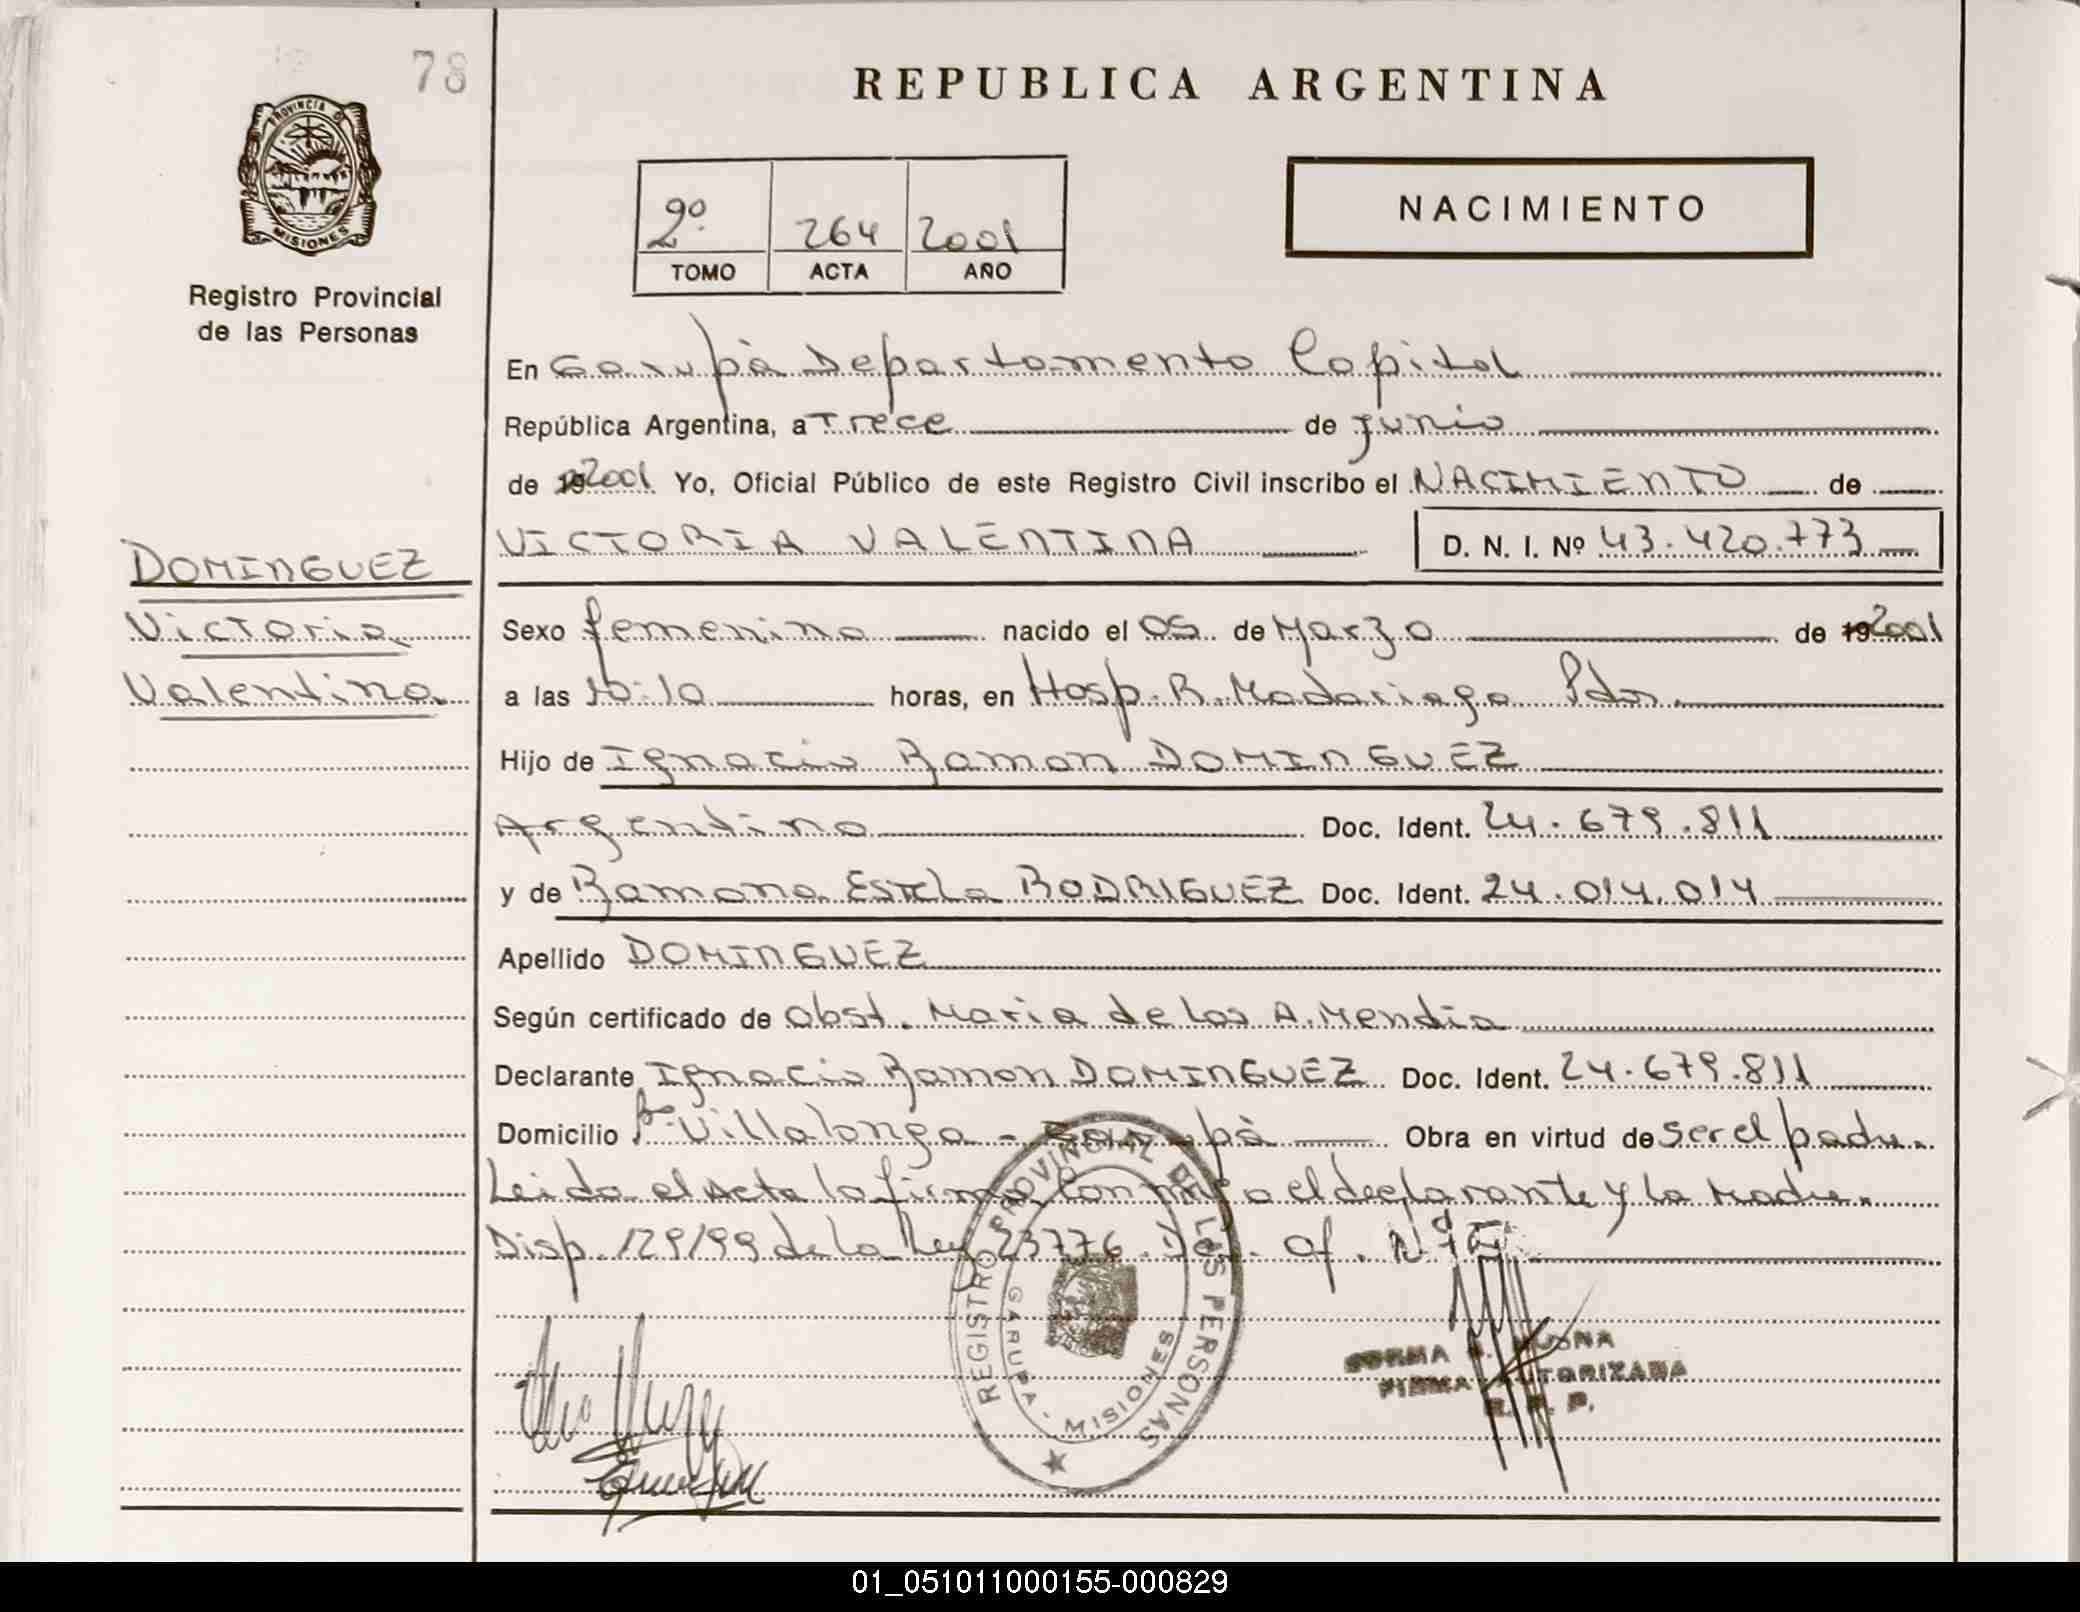 78
REPUBLICA ARGENTINA
PROVINCIA DE
MISIONES
Registro Provincial
de las Personas
2º 264 2001
TOMO ACTA AÑO
NACIMIENTO
En Garupà Departamento Capital
República Argentina, a Trece de junio
de 19 2001 Yo, Oficial Público de este Registro Civil inscribo el NACIMIENTO de
VICTORIA VALENTINA D. N. I. Nº 43.420.773
DOMINGUEZ
Victoria
Valentina
Sexo femenino nacido el 05 de Marzo de 19 2001
a las 10:10 horas, en Hosp. R. Madariaga Pdas.
Hijo de Ignacio Ramon DOMINGUEZ
Argentino Doc. Ident. 24.679.811
y de Ramona Estela RODRIGUEZ Doc. Ident. 24.014.014
Apellido DOMINGUEZ
Según certificado de Obst. Maria de los A. Mendia
Declarante Ignacio Ramon DOMINGUEZ Doc. Ident. 24.679.811
Domicilio Bº Villalonga - Garupà Obra en virtud de ser el padre.
Leida el Acta la firma conmigo el declarante y la Madre.
Disp. 129/99 de la Ley 23776. Of.
REGISTRO PROVINCIAL DE LAS PERSONAS
GARUPA - MISIONES
FIRMA AUTORIZADA
R. P. P.
01_051011000155-000829